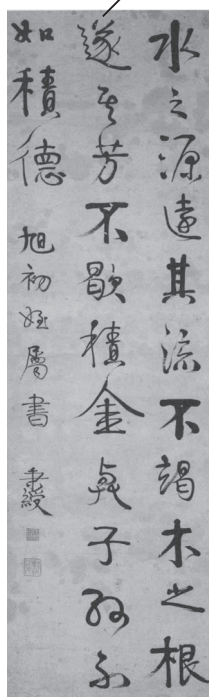 水之源遠其流不竭木之根
遂其芳不歇積金與子孫不
如積德
旭初姪屬書
秉綬